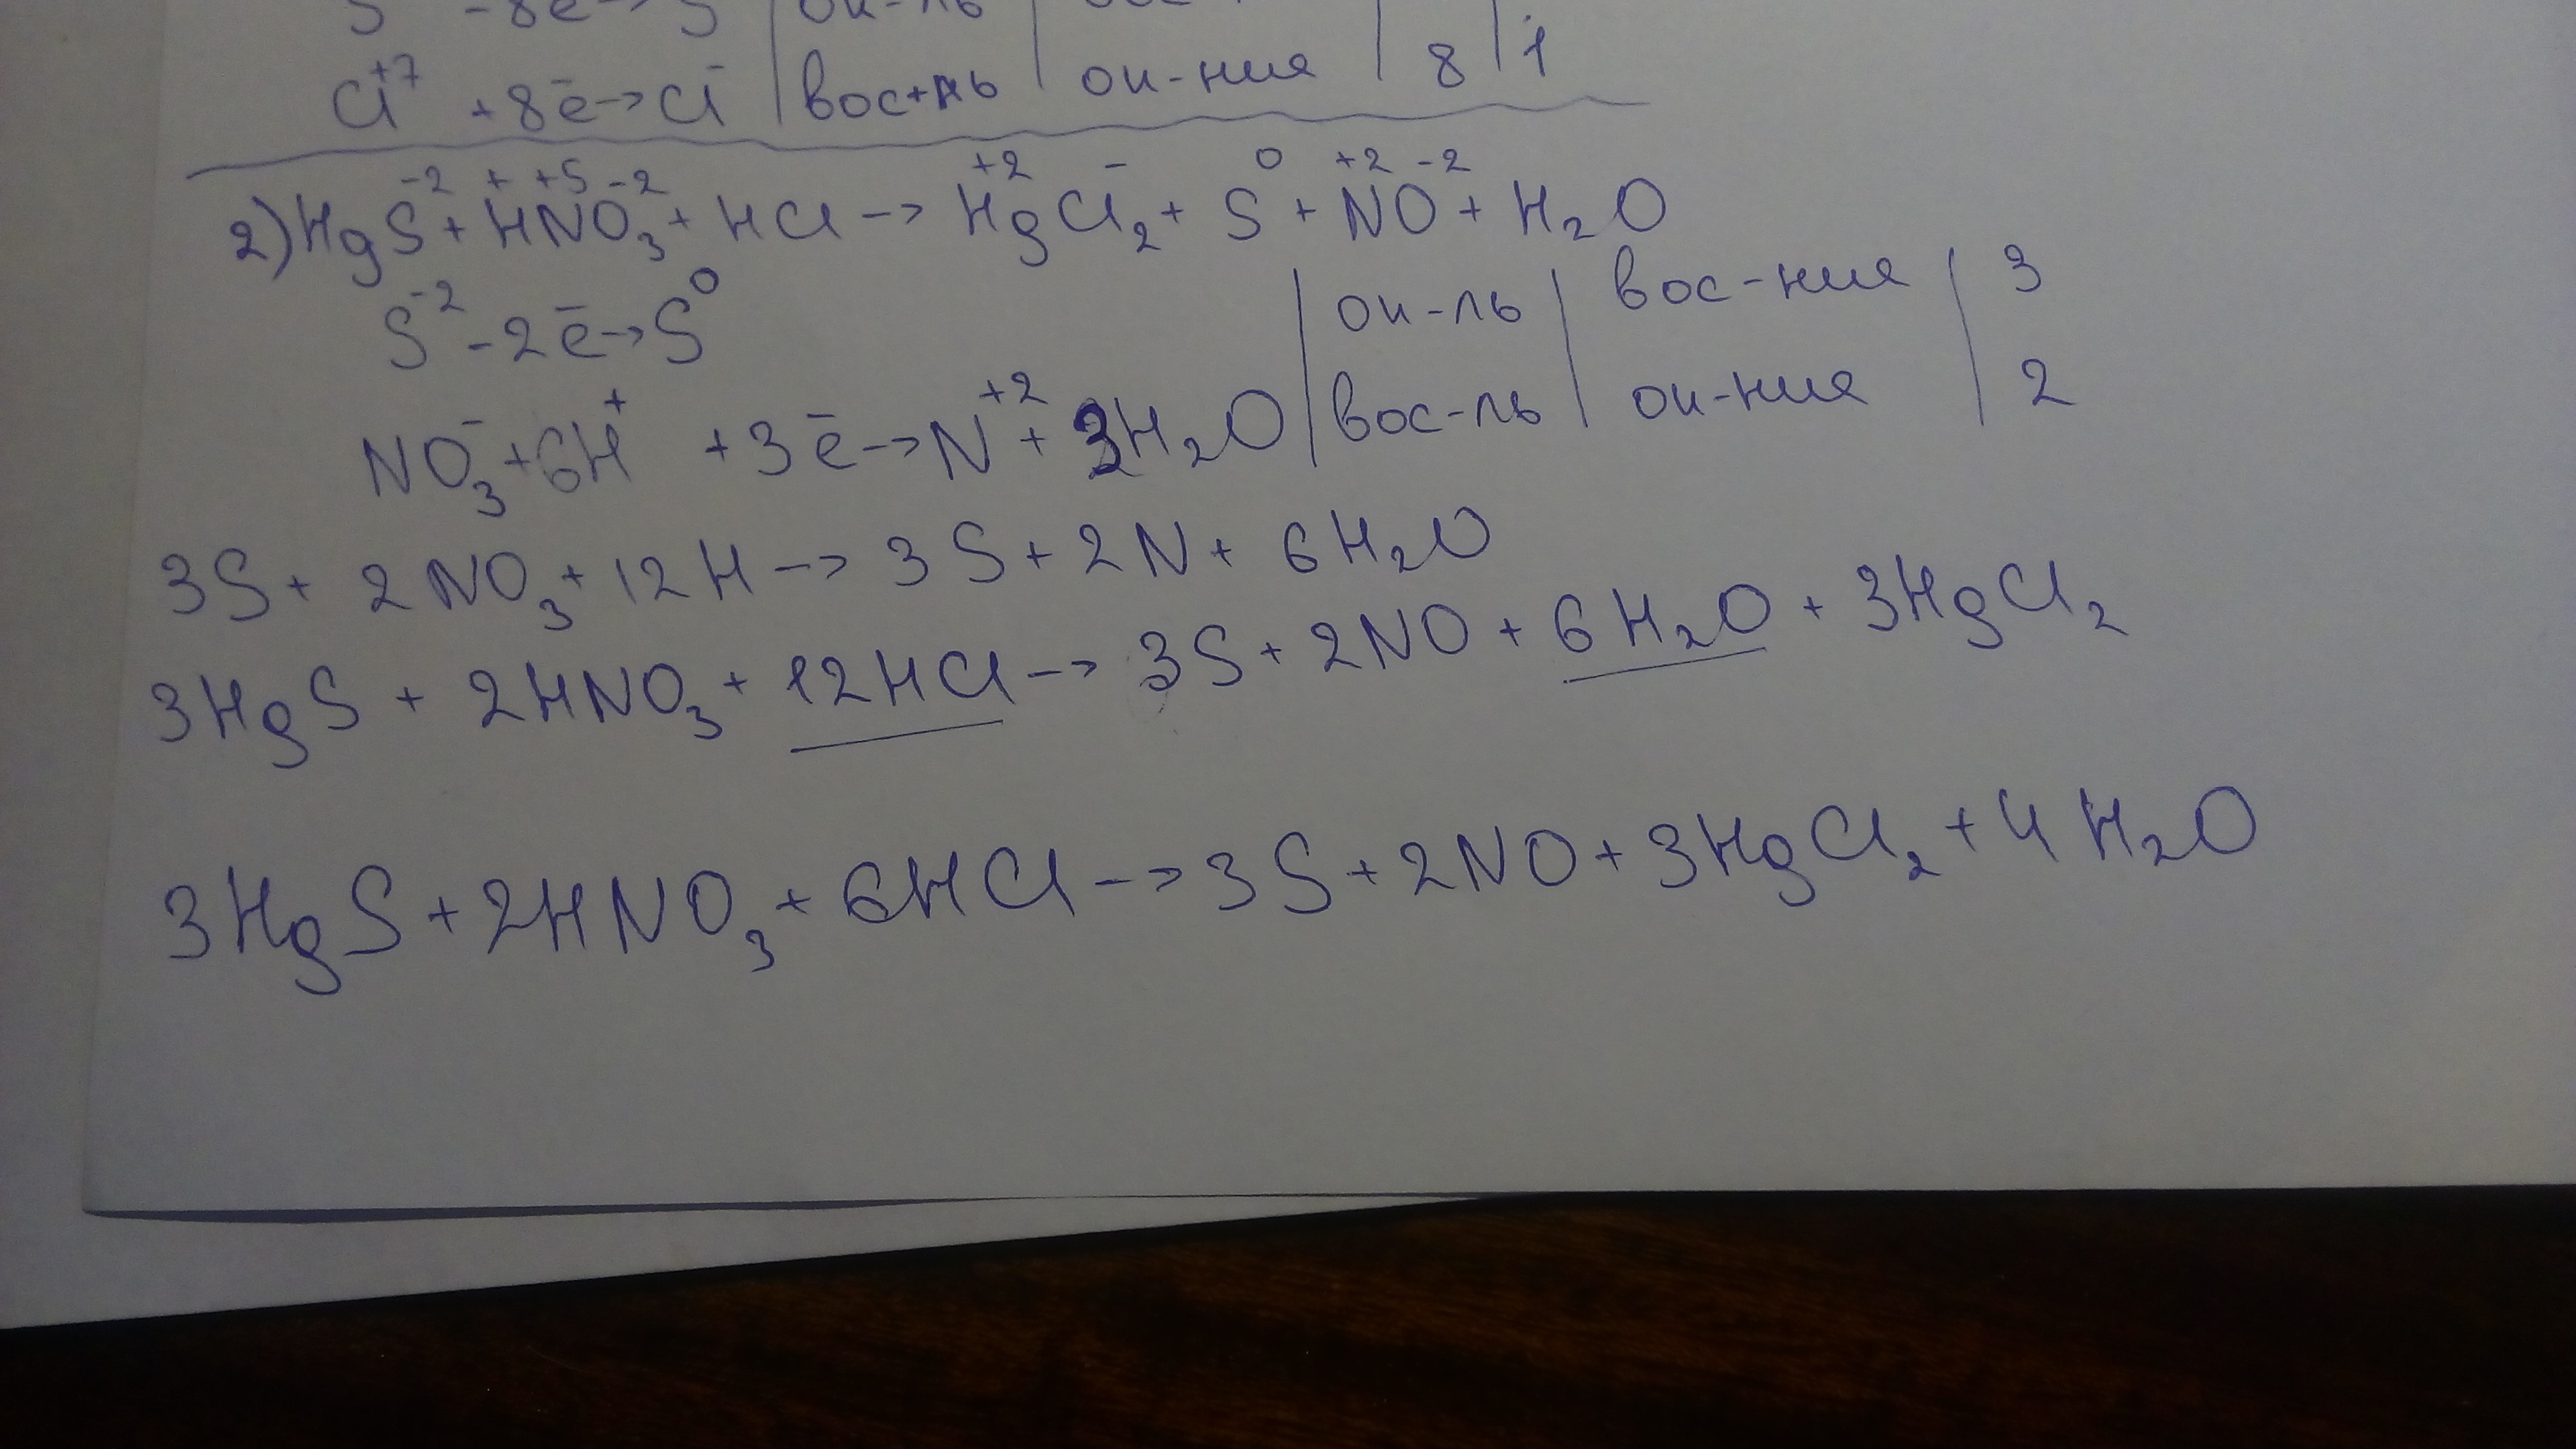 S -8ē→S | ок-ль |
Cl⁺⁷ +8ē→Cl⁻ | вост-ль | ок-ния | 8 | 1
2) HgS⁻² + H⁺N⁺⁵O₃⁻² + HCl → Hg⁺²Cl₂⁻ + S⁰ + N⁺²O⁻² + H₂O
S⁻² -2ē→S⁰ | ок-ль | вос-ния | 3
NO₃⁻+6H⁺ +3ē→N⁺² + 3H₂O | вос-ль | ок-ния | 2
3S + 2NO₃ + 12H → 3S + 2N + 6H₂O
3HgS + 2HNO₃ + 12HCl → 3S + 2NO + 6H₂O + 3HgCl₂
3HgS + 2HNO₃ + 6HCl → 3S + 2NO + 3HgCl₂ + 4H₂O